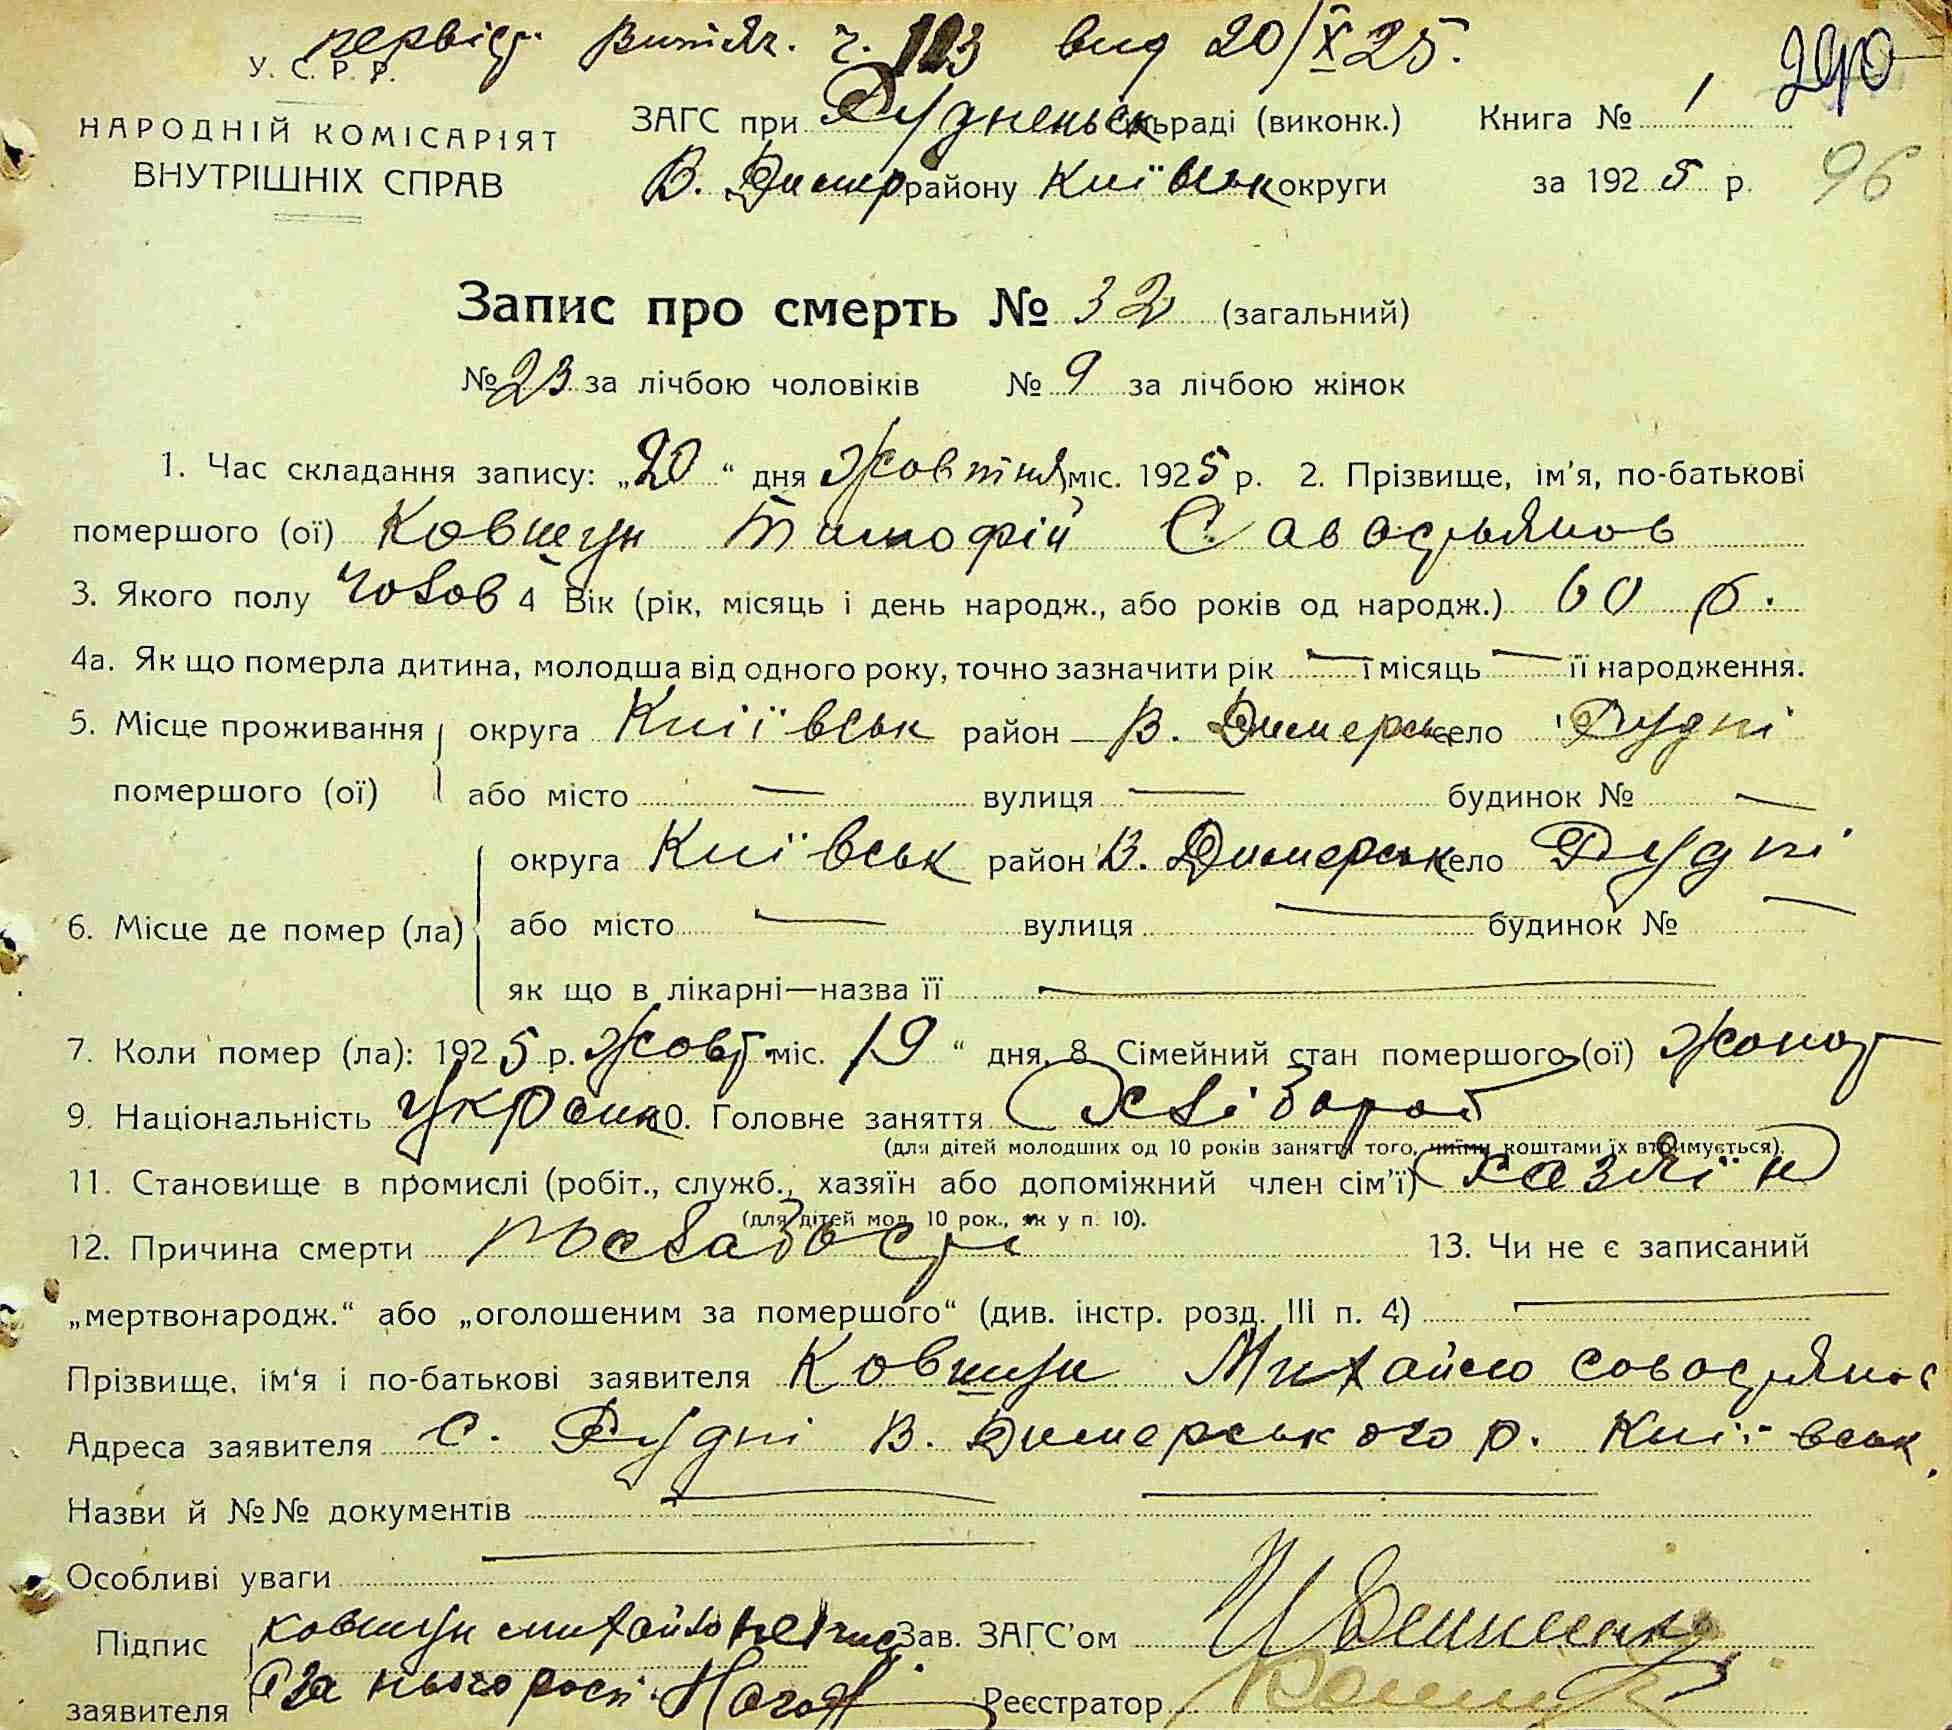 первіст. Витяг. ч. 123 вид 20/X 25.
У. С. Р. Р.
290
НАРОДНІЙ КОМІСАРІЯТ
ВНУТРІШНІХ СПРАВ
ЗАГС при Рудненьск ськраді (виконк.) Книга № 1
В. Димер району Київськ округи за 1925 р. 96
Запис про смерть № 32 (загальний)
№ 23 за лічбою чоловіків № 9 за лічбою жінок
1. Час складання запису: „20“ дня Жовтня міс. 1925 р. 2. Прізвище, ім'я, по-батькові
помершого (ої) Ковшун Тимофій Савостьянов
3. Якого полу Чолов 4 Вік (рік, місяць і день народж., або років од народж.) 60 р.
4а. Як що померла дитина, молодша від одного року, точно зазначити рік — і місяць — її народження.
5. Місце проживання округа Київськ район В. Димерськ село Рудні
помершого (ої) або місто — вулиця — будинок № —
округа Київськ район В. Димерськ село Рудні
6. Місце де помер (ла) або місто — вулиця — будинок № —
як що в лікарні—назва її —
7. Коли помер (ла): 1925 р. Жовт міс. 19 “ дня. 8. Сімейний стан помершого (ої) Жонат
9. Національність Україн 10. Головне заняття Хлібороб
(для дітей молодших од 10 років заняття того, чиїми коштами їх втримується).
11. Становище в промислі (робіт., служб., хазяїн або допоміжний член сім'ї) Хазяїн
(для дітей мол. 10 рок., як у п. 10).
12. Причина смерти послабості 13. Чи не є записаний
„мертвонародж.“ або „оголошеним за помершого“ (див. інстр. розд. III п. 4) —
Прізвище, ім'я і по-батькові заявителя Ковшун Михайло Совостянов
Адреса заявителя С. Рудні В. Димерського р. Київськ.
Назви й №№ документів — —
Особливі уваги —
Підпис Ковшун Михайло непис Зав. ЗАГС'ом
заявителя за нього росп. Реєстратор